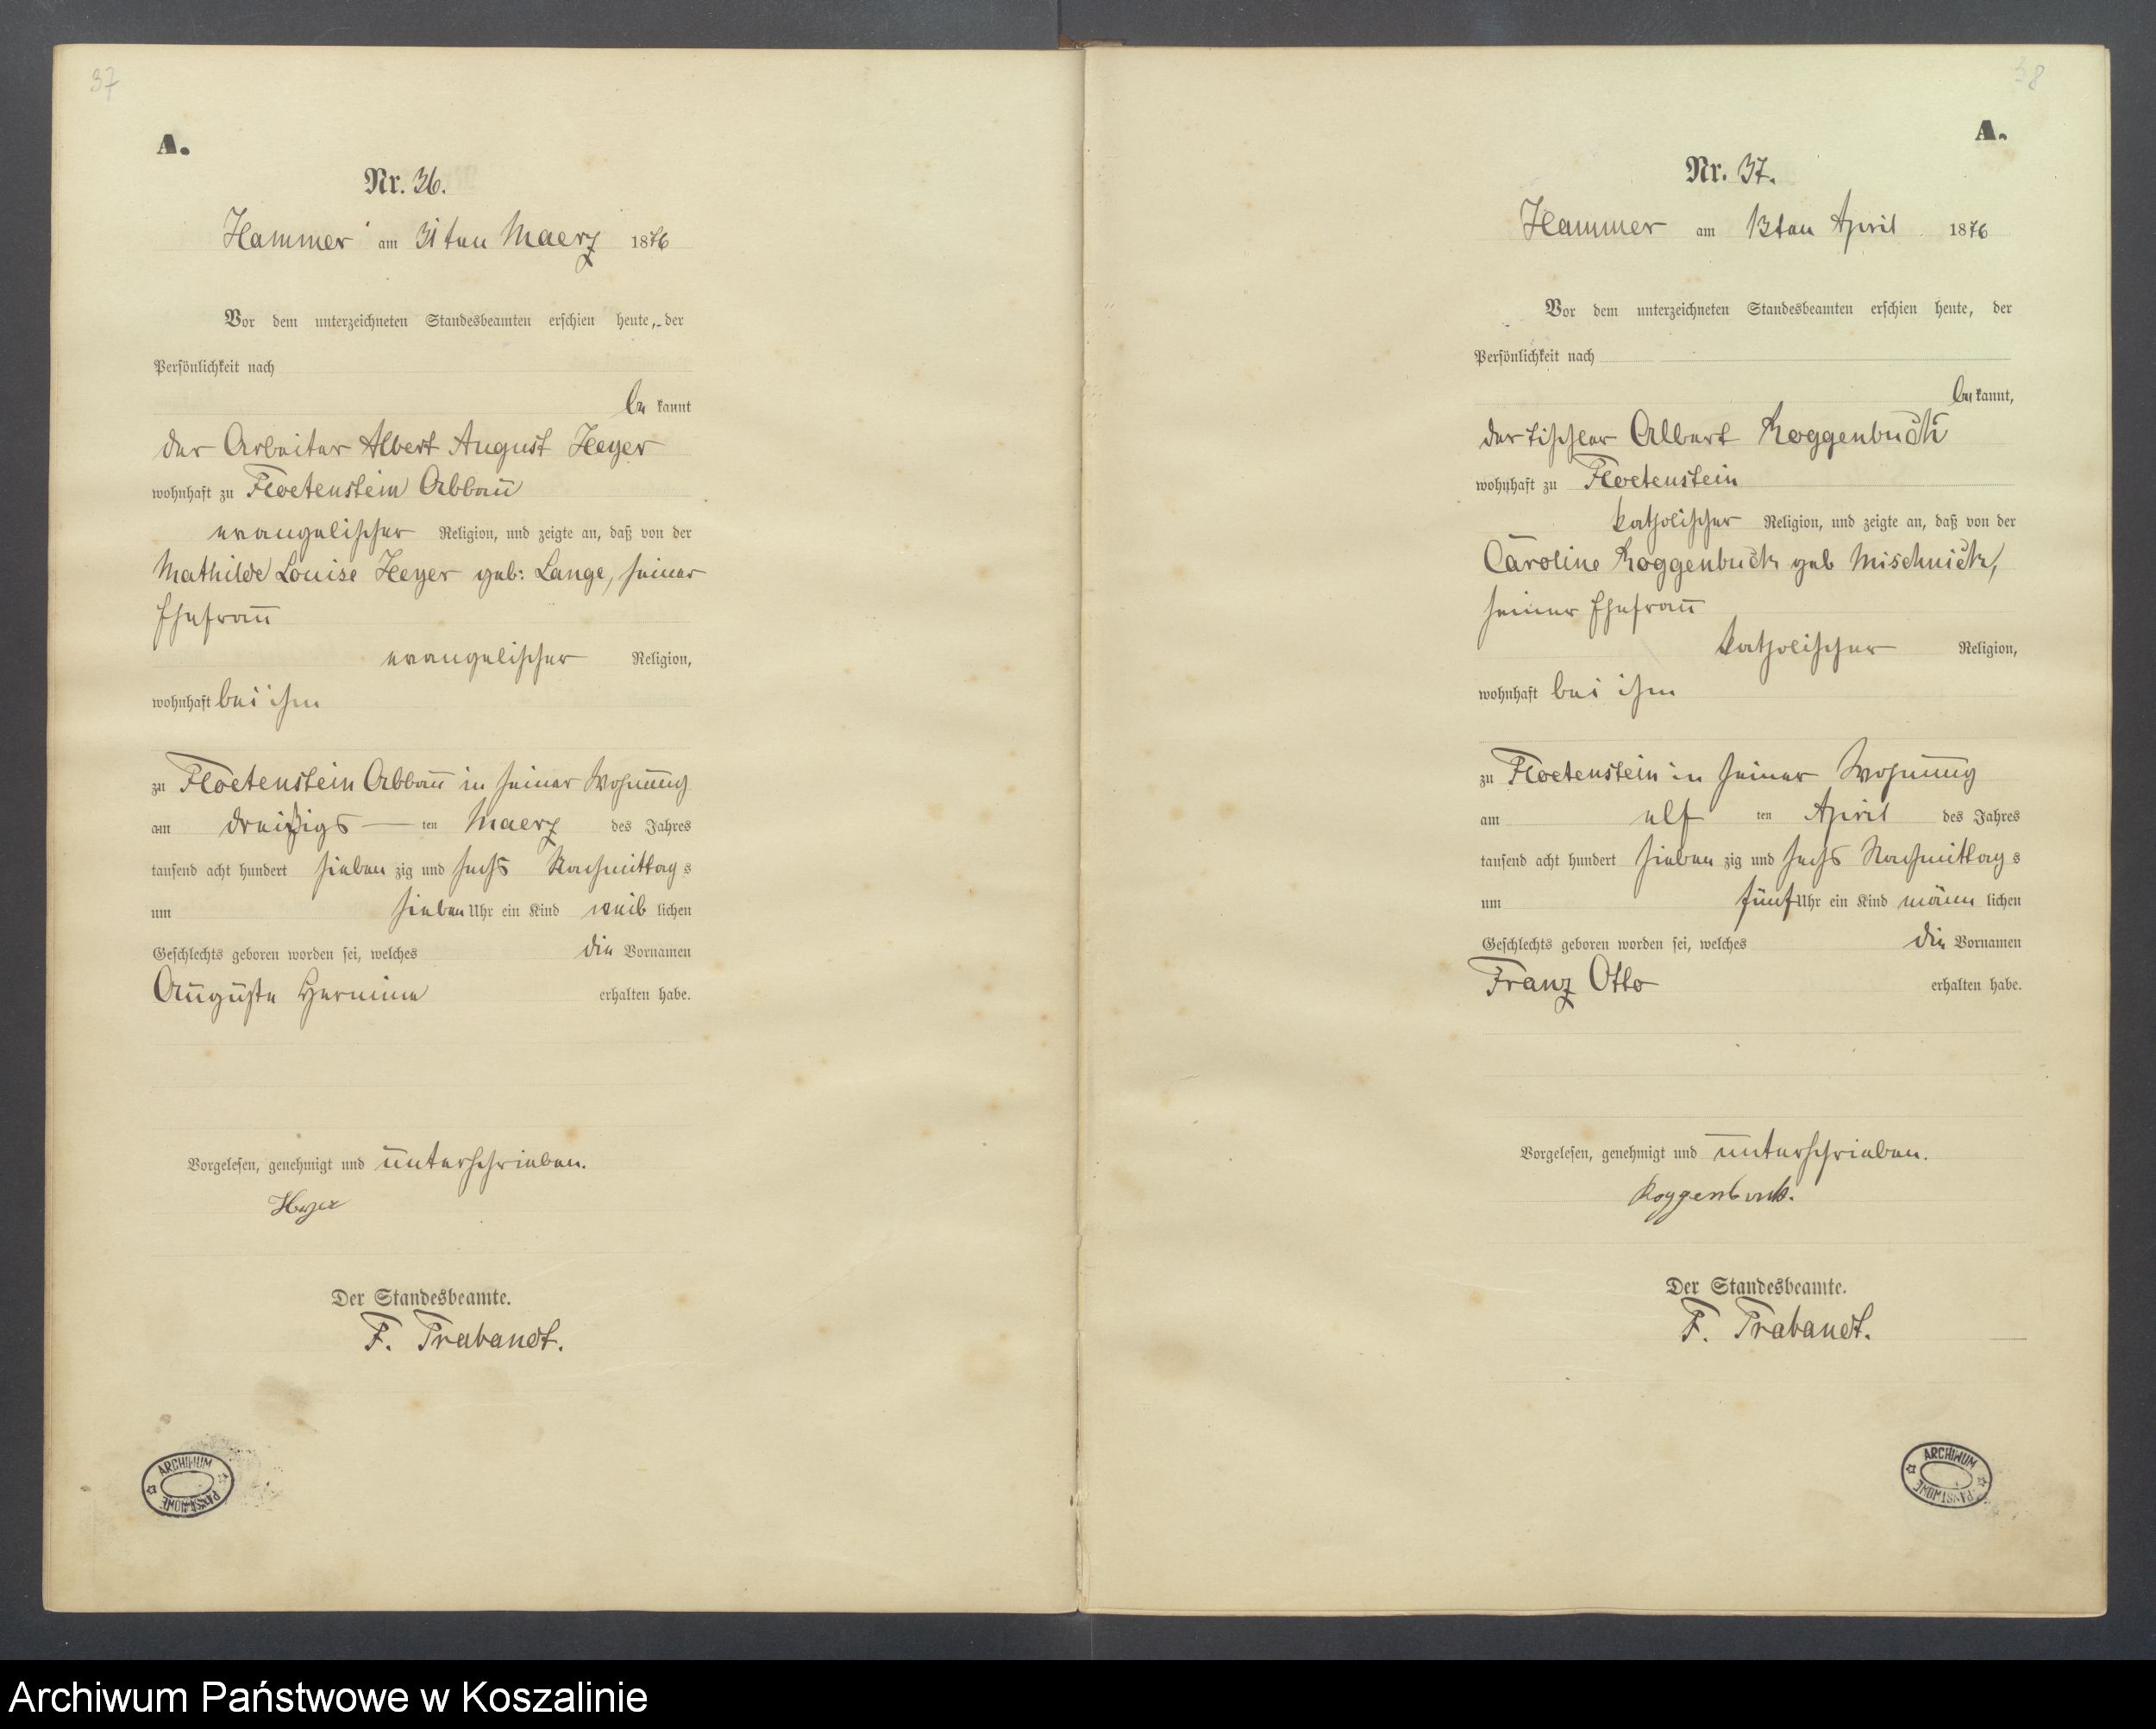 37
A.
Nr. 36.
Hammer am 31ten Maerz 1876
Vor dem unterzeichneten Standesbeamten erschien heute, der
Persönlichkeit nach
be kannt
der Arbeiter Albert August Heyer
wohnhaft zu Floetenstein Abbau
evangelischer Religion, und zeigte an, daß von der
Mathilde Louise Heyer geb: Lange, seiner
Ehefrau
evangelischer Religion,
wohnhaft bei ihm
zu Floetenstein Abbau in seiner Wohnung
am dreißigs — ten Maerz des Jahres
tausend acht hundert sieben zig und sechs Nachmittag s
um sieben Uhr ein Kind weib lichen
Geschlechts geboren worden sei, welches die Vornamen
Auguste Hermine erhalten habe.
Vorgelesen, genehmigt und unterschrieben.
Heyer
Der Standesbeamte.
F. Trabandt.
ARCHIWUM PAŃSTWOWE
38
A.
Nr. 37.
Hammer am 13ten April 1876
Vor dem unterzeichneten Standesbeamten erschien heute, der
Persönlichkeit nach
be kannt,
der Tischler Albert Roggenbuck
wohnhaft zu Floetenstein
katholischer Religion, und zeigte an, daß von der
Caroline Roggenbuck geb Mischnick,
seiner Ehefrau
katholischer Religion,
wohnhaft bei ihm
zu Floetenstein in seiner Wohnung
am elf ten April des Jahres
tausend acht hundert sieben zig und sechs Nachmittag s
um fünf Uhr ein Kind männ lichen
Geschlechts geboren worden sei, welches die Vornamen
Franz Otto erhalten habe.
Vorgelesen, genehmigt und unterschrieben.
Roggenbuck.
Der Standesbeamte.
F. Trabandt.
ARCHIWUM PAŃSTWOWE
Archiwum Państwowe w Koszalinie